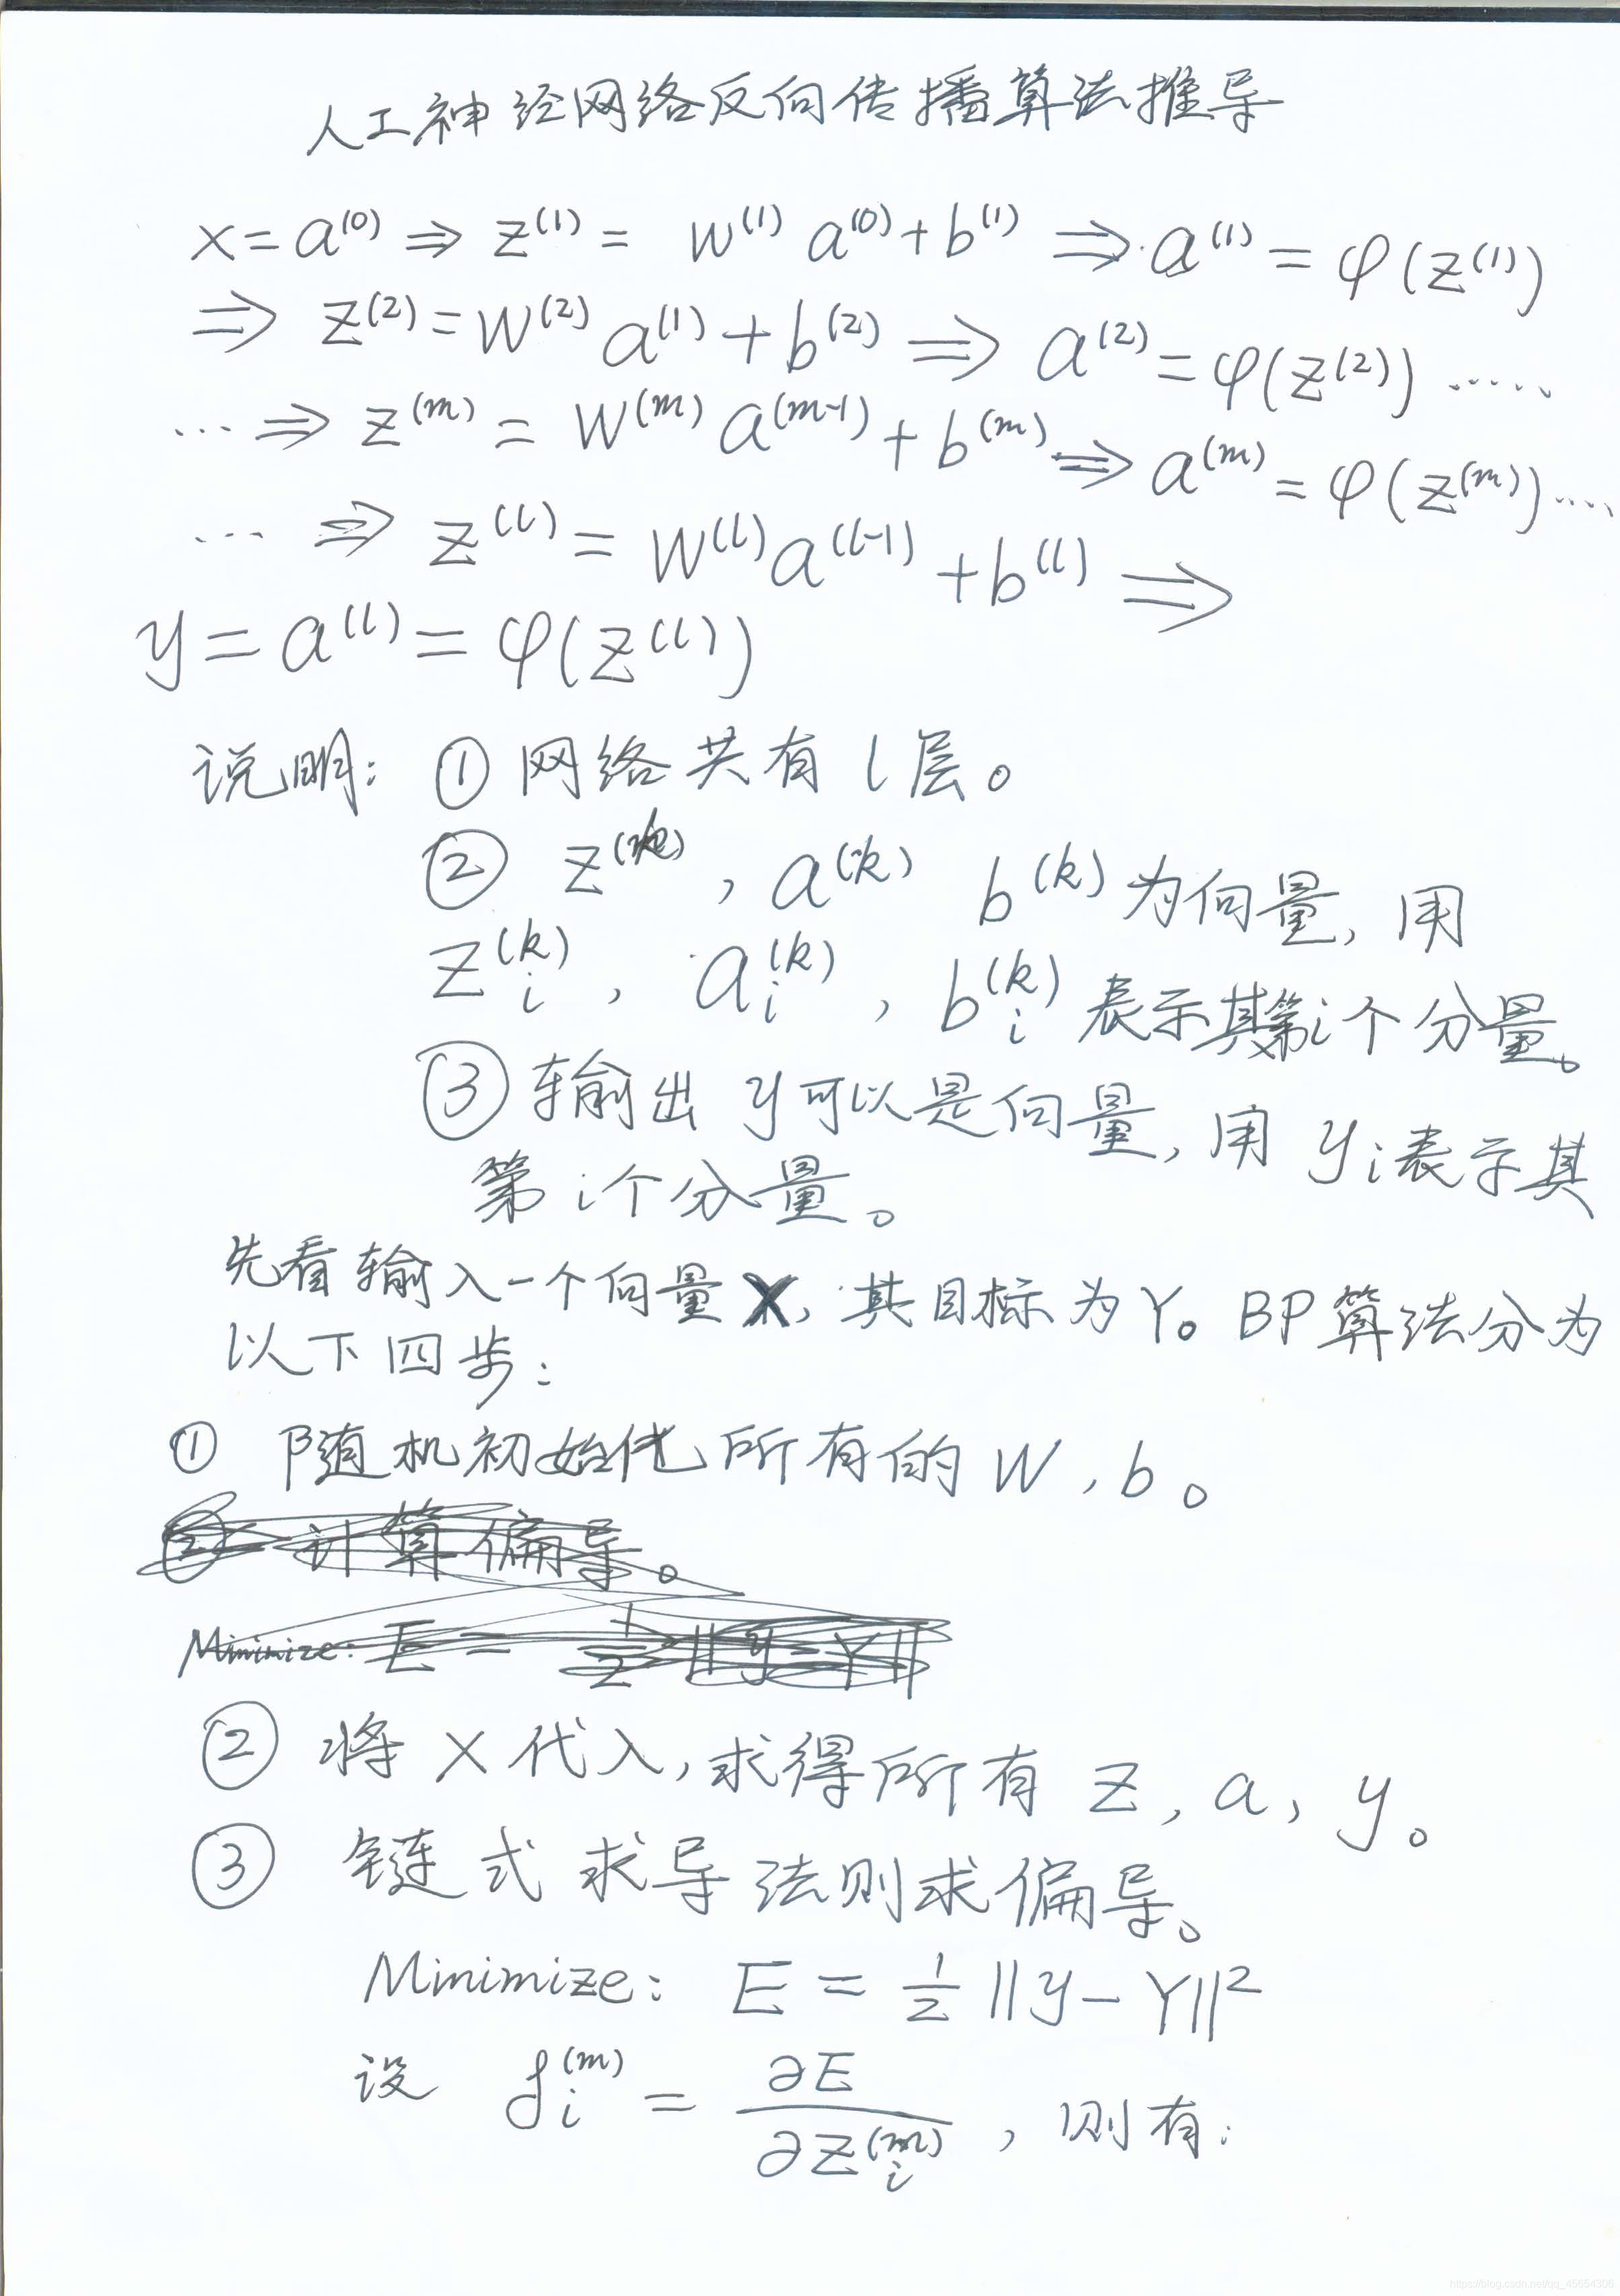 人工神经网络反向传播算法推导
x = a⁽⁰⁾ ⇒ z⁽¹⁾ = W⁽¹⁾ a⁽⁰⁾ + b⁽¹⁾ ⇒ a⁽¹⁾ = φ(z⁽¹⁾)
⇒ z⁽²⁾ = W⁽²⁾ a⁽¹⁾ + b⁽²⁾ ⇒ a⁽²⁾ = φ(z⁽²⁾) ……
… ⇒ z^(m) = W^(m) a^(m-1) + b^(m) ⇒ a^(m) = φ(z^(m)) ……
… ⇒ z^(l) = W^(l) a^(l-1) + b^(l) ⇒
y = a^(l) = φ(z^(l))
说明: ① 网络共有 l 层。
② z^(k), a^(k) b^(k) 为向量, 用
z_i^(k), a_i^(k), b_i^(k) 表示其第i个分量。
③ 输出 y可以是向量, 用 y_i表示其
第 i个分量。
先看输入一个向量 X, 其目标为Y。BP算法分为
以下四步:
① 随机初始化所有的 W, b。
② 计算偏导。
Minimize: E = 1/2 ||y-Y||
② 将 X 代入, 求得所有 z, a, y。
③ 链式求导法则求偏导。
Minimize: E = 1/2 ||y-Y||²
设 δ_i^(m) = ∂E/∂z_i^(m), 则有: